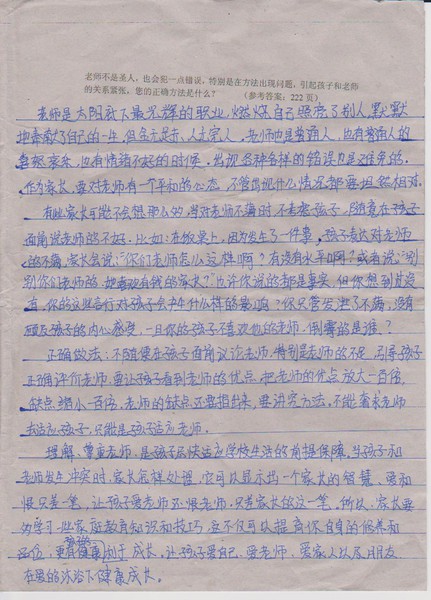 老师不是圣人，也会犯一点错误，特别是在方法出现问题，引起孩子和老师
的关系紧张，您的正确方法是什么？（参考答案：222页）
老师是太阳底下最光辉的职业，燃烧自己照亮了别人，默默
地奉献了自己的一生，但金无足赤，人无完人，老师也是普通人，也有普通人的
喜怒哀乐，也有情绪不好的时候，出现各种各样的错误也是难免的。
作为家长，要对老师有一个平和的心态，不管出现什么情况都要坦然相对。
有些家长可能不会想那么的，当对老师不满时，不考虑孩子，随意在孩子
面前说老师的不好，比如：在饭桌上，因为发生了一件事，孩子喜欢对老师
的不满，家长会说："你们老师怎么这样啊？有没有水平啊？或者说："别
别你们老师的，她喜欢有钱的家长？"也许你说的都是事实，但你想到过没
有，你的这些言行对孩子会产生什么样的影响？你只管发泄了不满，没有
顾及孩子的内心感受，一旦你的孩子不喜欢他的老师，倒霉的是谁？
正确做法：不随便在孩子面前议论老师，特别是老师的不足，引导孩子
正确评价老师，要让孩子看到老师的优点，把老师的优点放大一百倍，
缺点缩小一百倍，老师的缺点还要指出来，要讲究方法，不能要求老师
去适应孩子，只能是孩子适应老师。
理解、尊重老师，是孩子尽快适应学校生活的前提保障，当孩子和
老师发生冲突时，家长怎样处理，它可以显示出一个家长的智慧，爱和
恨只差一笔，让孩子爱老师还恨老师，只差家长的这一笔，所以，家长要
多学习一些家庭教育知识和技巧，这不仅可以提高你自身的修养和
品位，更有利于孩子成长，让孩子爱自己，爱老师，爱家人以及朋友
在爱的沐浴下健康成长。